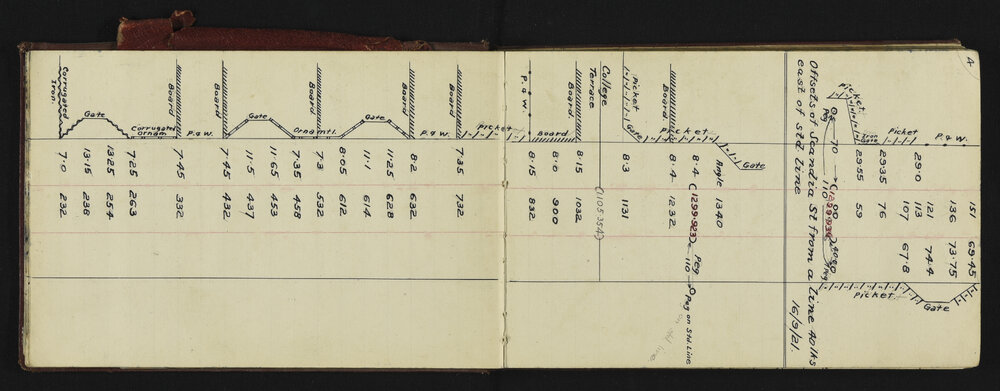 A
151 69.45
136 73.75
P. & W.
121 74.4
29.0 113
107 67.8
Gate
Picket
29.35 76
Picket
Iron Gate
23.55 59
Picket
Peg 70 110 00
(1299.93)
Peg
Offsets of Scandia St from a line 40 lks
east of std line
16/9/21.
Angle 1340
Gate
8.4 (1299.923) Peg 110 Peg on Std. Line
Picket
8.4 1232
Gate
Picket
8.3 1131
College
Terrace
(1053.54)
8.15 1032
Board.
8.0 900
Board
8.15 832
P. & W.
Picket
7.35 732
Board
P. & W.
8.12 632
Board
11.25 628
Gate
11.1 614
8.05 612
7.3 532
Board
Ornamtl.
7.35 458
11.65 453
Gate
11.5 437
7.45 432
Board
P. & W.
7.45 332
Board
Corrugated
Ornam.
7.25 263
13.25 254
Gate
13.15 238
7.0 232
Corrugated
Iron.